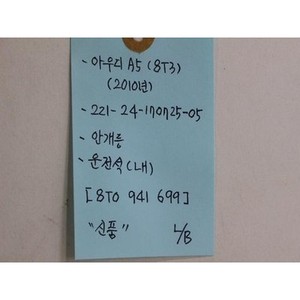 - 아우디 A5 (8T3)
(2010년)
- 221-24-170725-05
- 안개등
- 운전석(내)
[8T0 941 699]
"신품" L/B